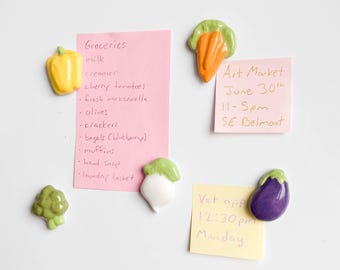 Groceries
- milk
- creamer
- cherry tomatoes
- fresh mozzarella
- olives
- crackers
- bagels (blueberry)
- muffins
- hand soap
- laundry basket
Art Market
June 30th
11-5pm
SE Belmont
Vet app
12:30pm
Monday